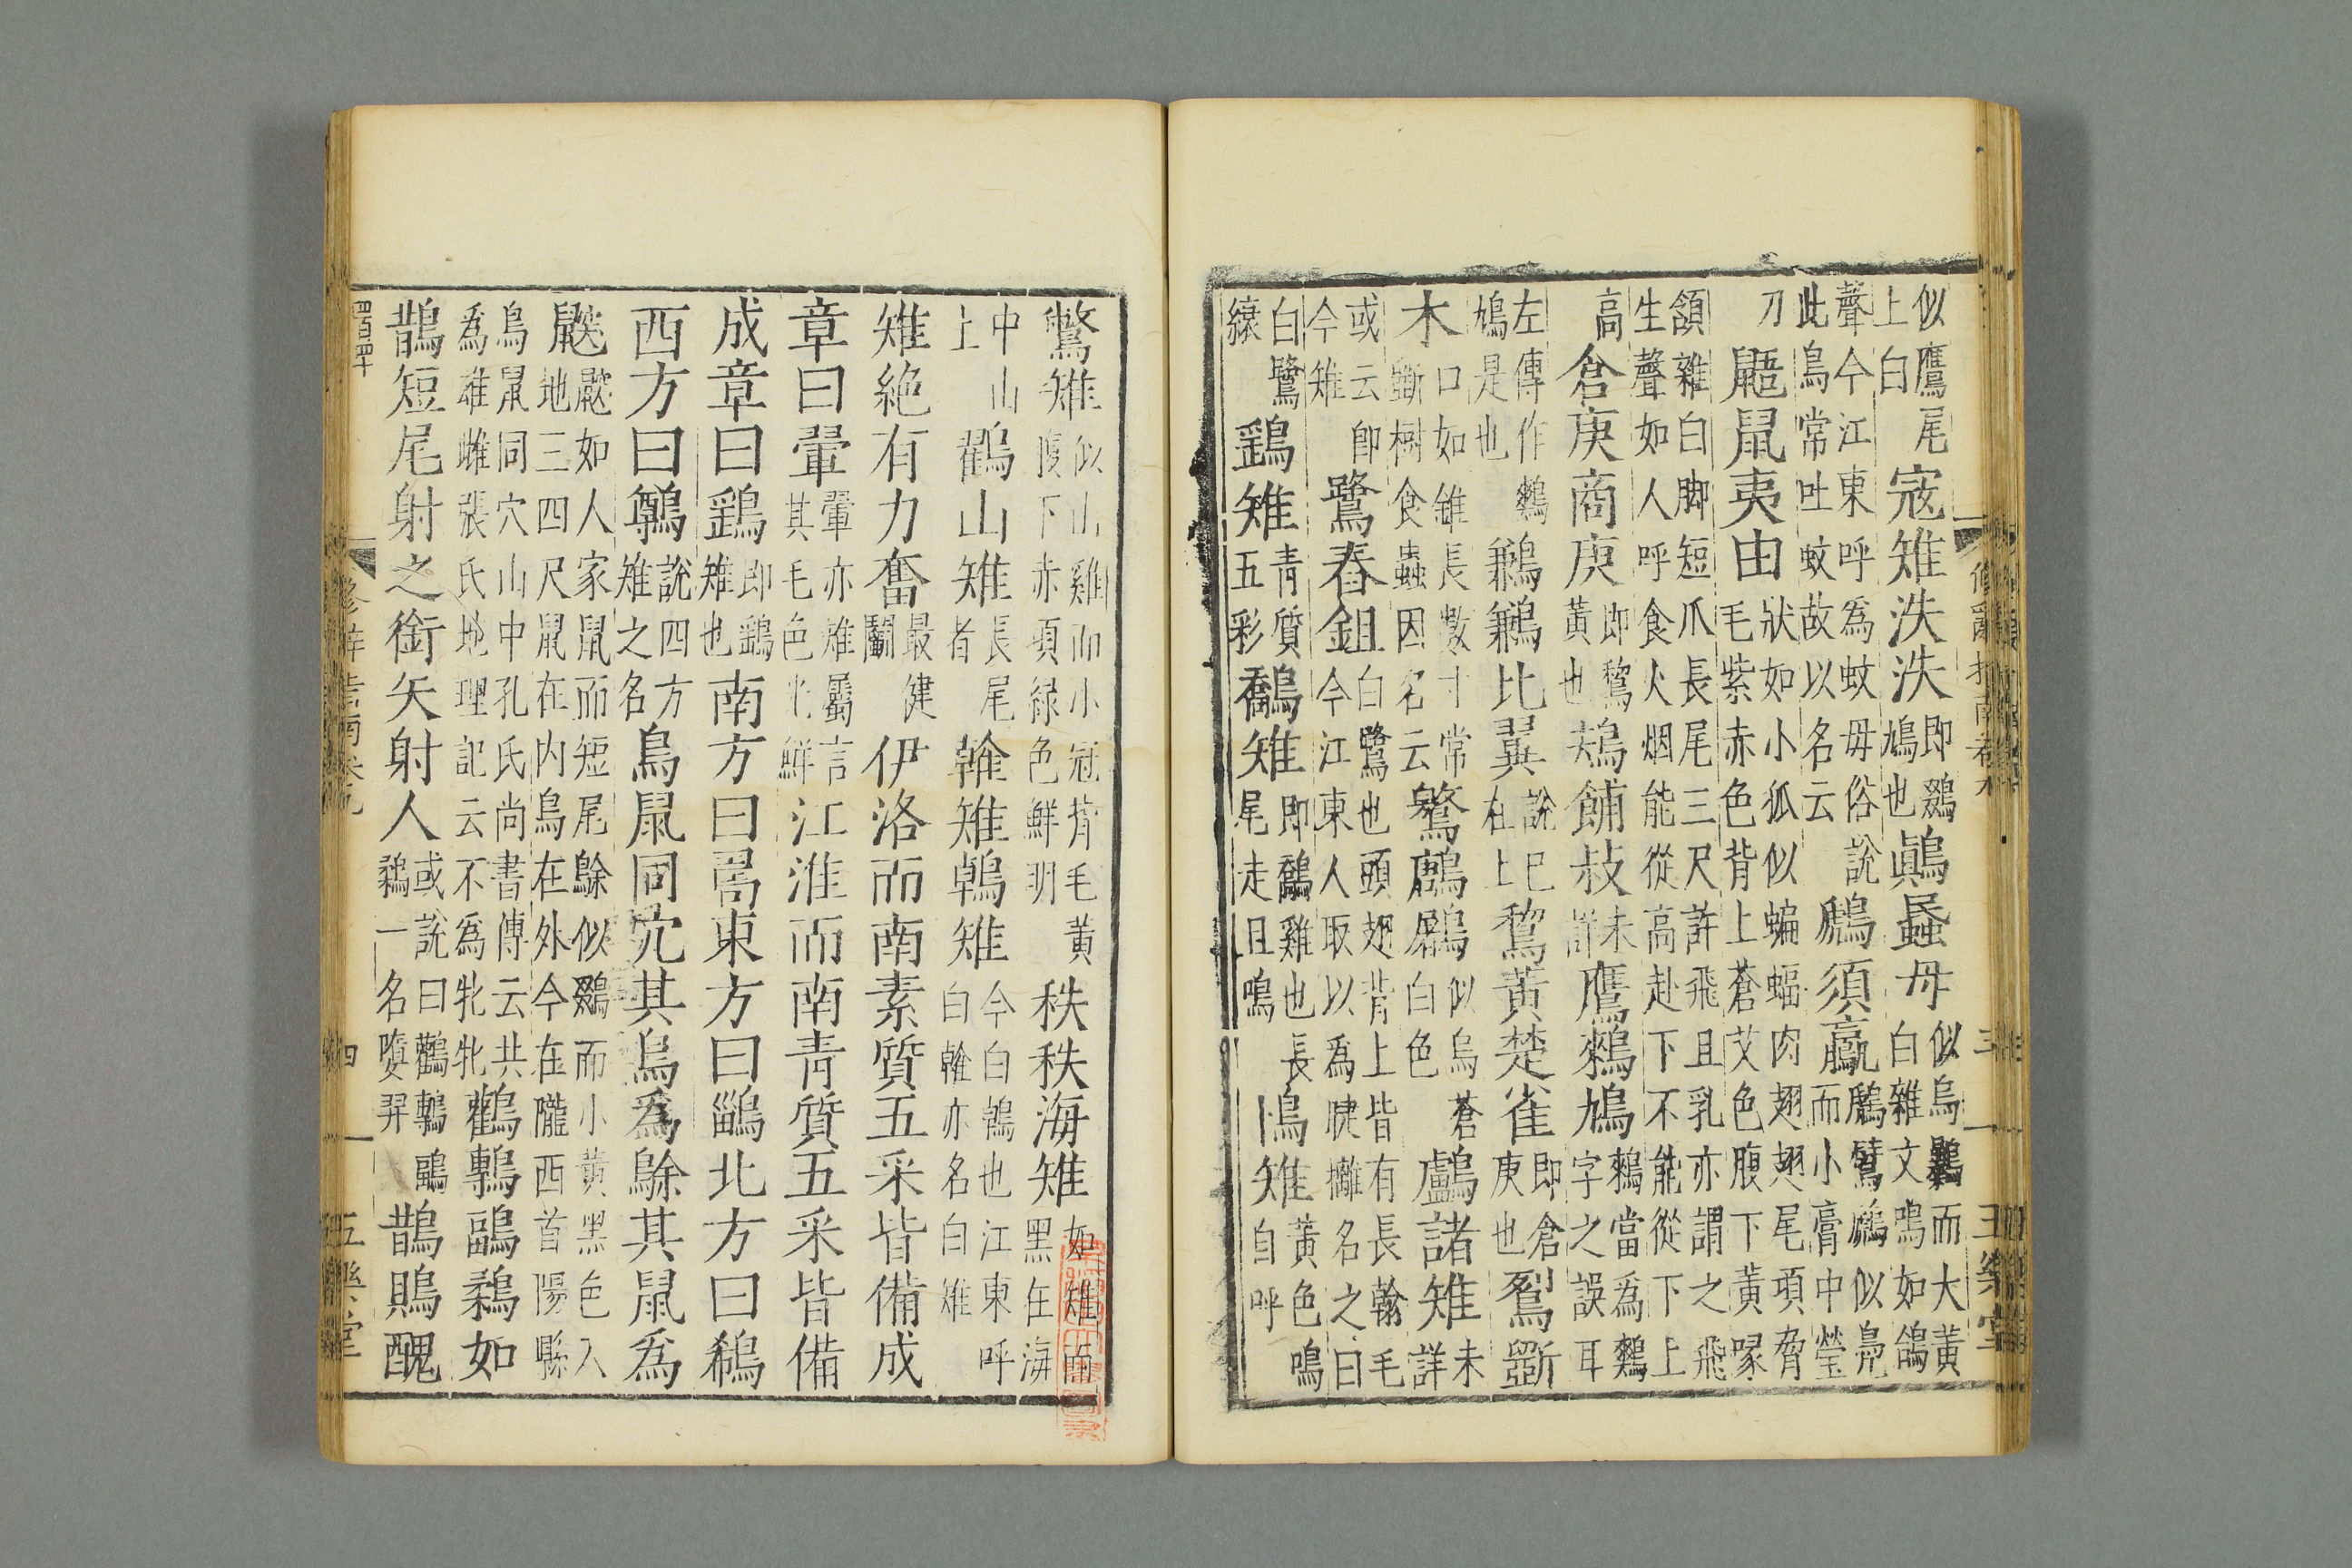 似鷹尾上白寇雉泆泆即鵽鳩也鷏蟁母似烏鷃而大黃白雜文鳴如鴿
聲今江東呼為蚊母俗說此鳥常吐蚊故以名云鷉須鸁鷉鷿鷉似鳧而小膏中瑩
刀鼯鼠夷由狀如小狐似蝙蝠肉翅翅尾項脅毛紫赤色背上蒼艾色腹下黃喙
頷雜白脚短爪長尾三尺許飛且乳亦謂之飛生聲如人呼食火烟能從高赴下不能從下上
高倉庚商庚即鵹黃也鴩餔敊未詳鷹鶆鳩鶆當為鷞字之誤耳
左傳作鷞鳩是也鶼鶼比翼說已在上鵹黃楚雀即倉庚也鴷斲
木口如錐長數寸常斲樹食蟲因名云鸄鶶鷵似烏蒼白色鸕諸雉未詳
或云即今雉鷺舂鉏白鷺也頭翅背上皆有長翰毛今江東人取以為睫攡名之曰
白鷺縗鷂雉青質五彩鷮雉即鷮雞也長尾走且鳴鳪雉黃色鳴自呼
鷩雉似山雞而小冠背毛黃腹下赤項綠色鮮明秩秩海雉如雉而黑在海
中山上鸐山雉長尾者雗雉鵫雉今白鵫也江東呼白雗亦名白雉
雉絶有力奮最健鬬伊洛而南素質五采皆備成
章曰翬翬亦雉屬言其毛色光鮮江淮而南青質五采皆備
成章曰鷂即鷂雉也南方曰𠷎東方曰鶅北方曰鵗
西方曰鷷說四方雉之名鳥鼠同穴其鳥為鵌其鼠為
鼵鼵如人家鼠而短尾鵌似鵽而小黃黑色入地三四尺鼠在內鳥在外今在隴西首陽縣
鳥鼠同穴山中孔氏尚書傳云共為雄雌張氏地理記云不為牝牡鸛鷒鶝鶔如
鵲短尾射之銜矢射人或說曰鸛鷒鶝鶔一名羿鵲鵙醜